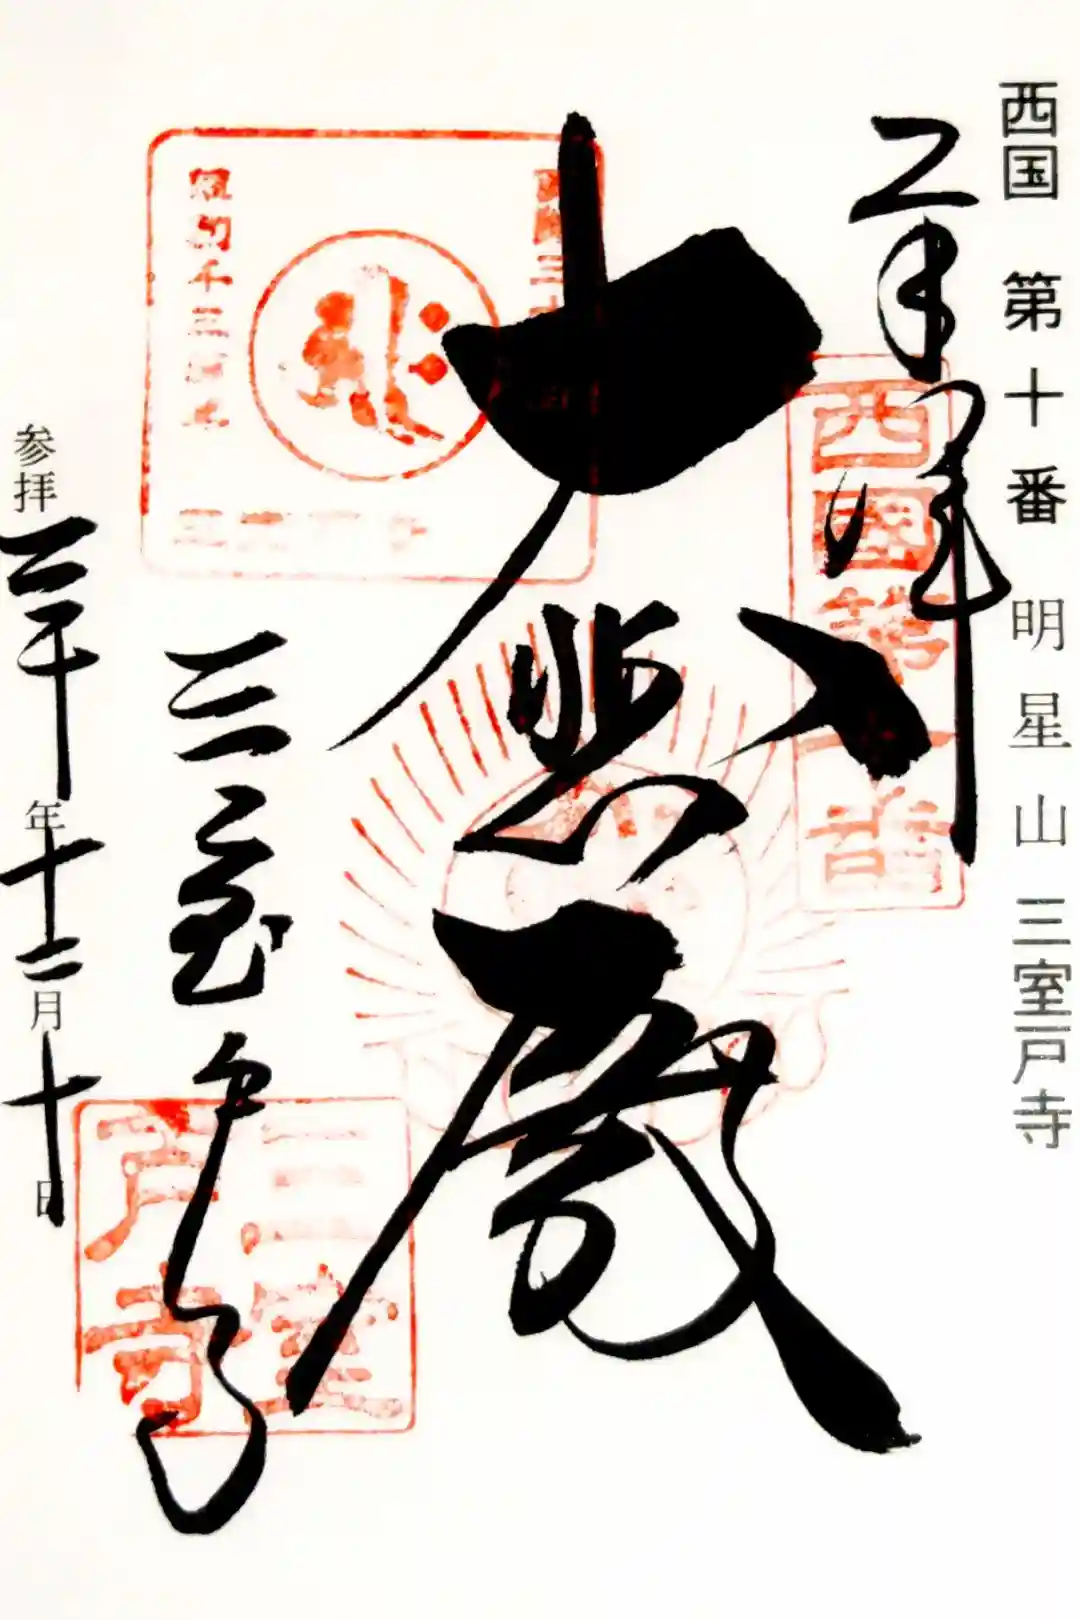 西国 第十番 明星山 三室戸寺
奉拝
西國第十番
大悲殿
三室戸寺
三室戸寺
参拝 三十年十二月十日